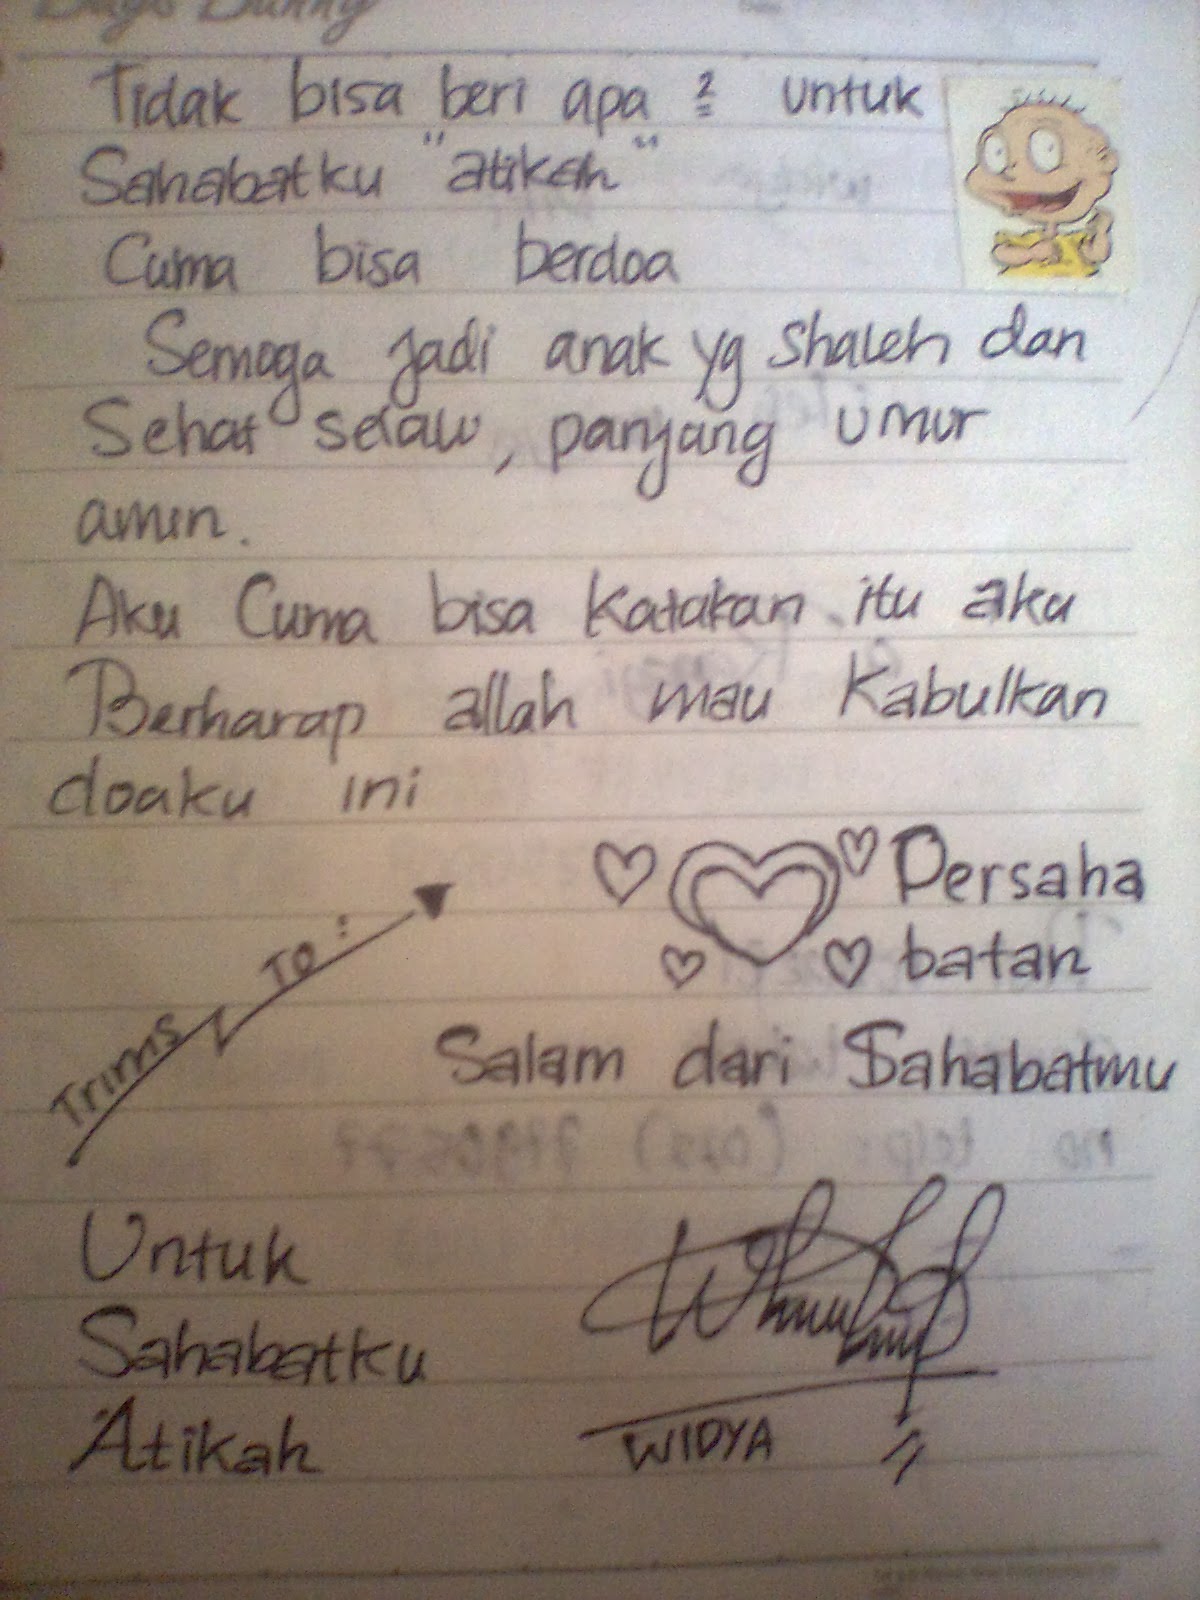 Bugs Bunny
Tidak bisa beri apa 2 untuk
Sahabatku "atikah"
Cuma bisa berdoa
Semoga jadi anak yg shaleh dan
Sehat selalu, panjang umur
amin.
Aku Cuma bisa katakan itu aku
Berharap allah mau Kabulkan
doaku ini
Persaha
batan
Trims To :
Salam dari Sahabatmu
Untuk
Sahabatku
Atikah
WIDYA